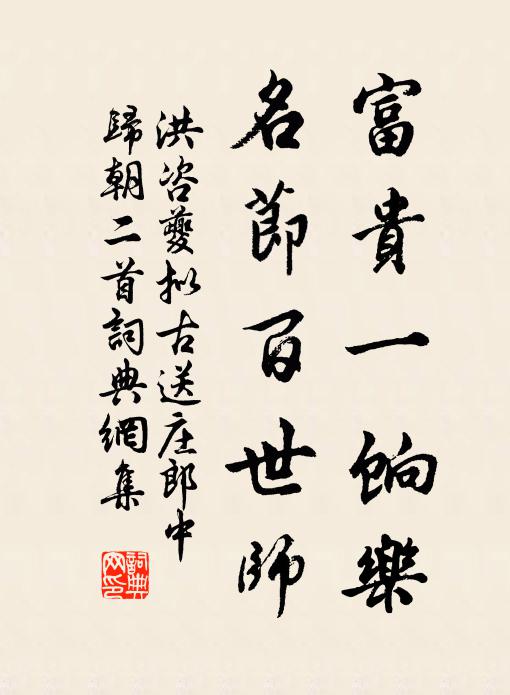 富貴一餉樂
名節百世師
洪咨夔拟古送庄郎中
歸朝二首詞典網集
詞典
网印